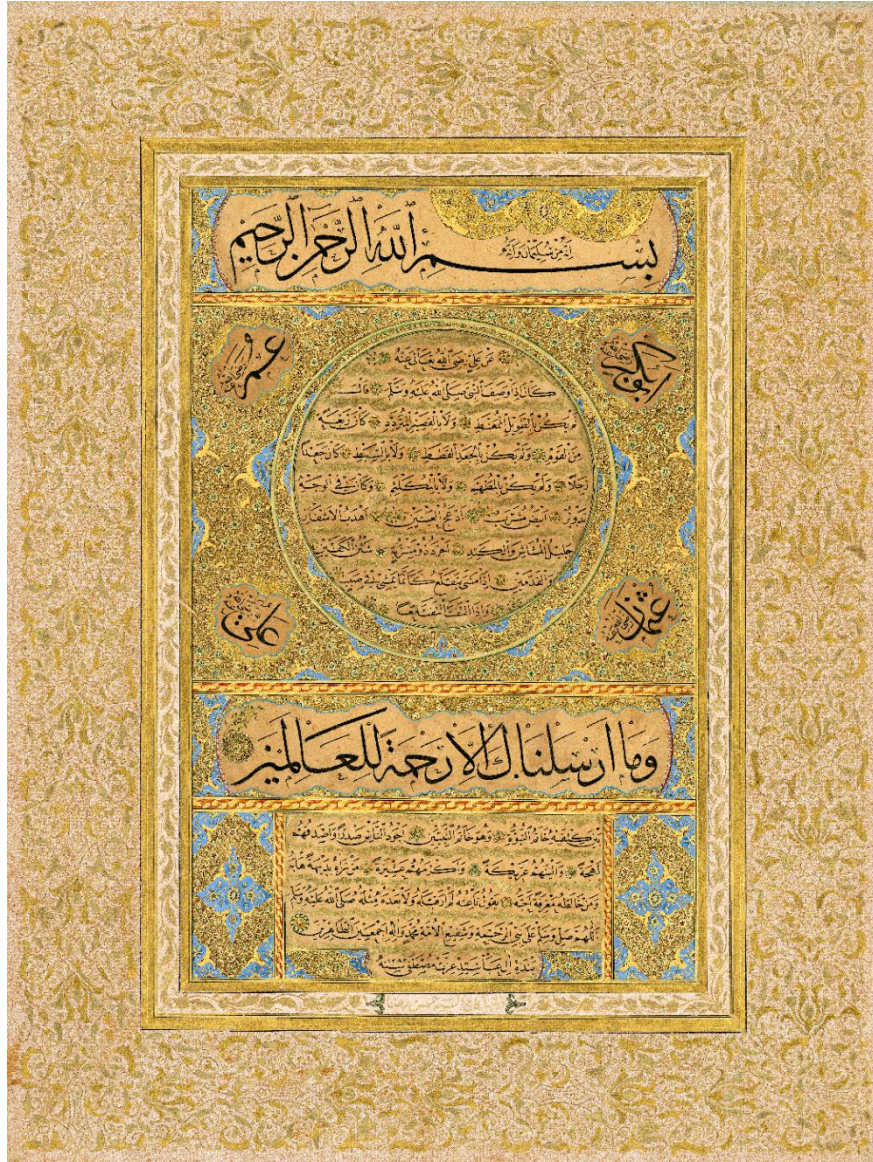 انه من سليمان وانه
بسم الله الرحمن الرحيم
ابوبكر
عمر
عن على رضى الله تعالى عنه
كان اذا وصف النبى صلى الله عليه وسلم قال
لم يكن بالطويل الممغط ولا بالقصير المتردد كان ربعة
من القوم ولم يكن بالجعد القطط ولا بالسبط كان جعدا
رجلا ولم يكن بالمطهم ولا بالمكلثم وكان فى الوجه
تدوير ابيض مشرب ادعج العينين اهدب الاشفار
جليل المشاش والكتد اجرد ذو مسربة شثن الكفين
والقدمين اذا مشى يتقلع كانما يمشى فى صبب
واذا التفت التفت معا
عثمان
على
وما ارسلناك الا رحمة للعالمين
بين كتفيه خاتم النبوة وهو خاتم النبيين اجود الناس صدرا واصدقهم
لهجة والينهم عريكة واكرمهم عشيرة من رآه بديهة هابه
ومن خالطه معرفة احبه يقول ناعته لم ار قبله ولا بعده مثله صلى الله عليه وسلم
اللهم صل وسلم على نبى الرحمة وشفيع الامة محمد واله اجمعين الطاهرين
بندة آل عبا سيد عزت مصطفى